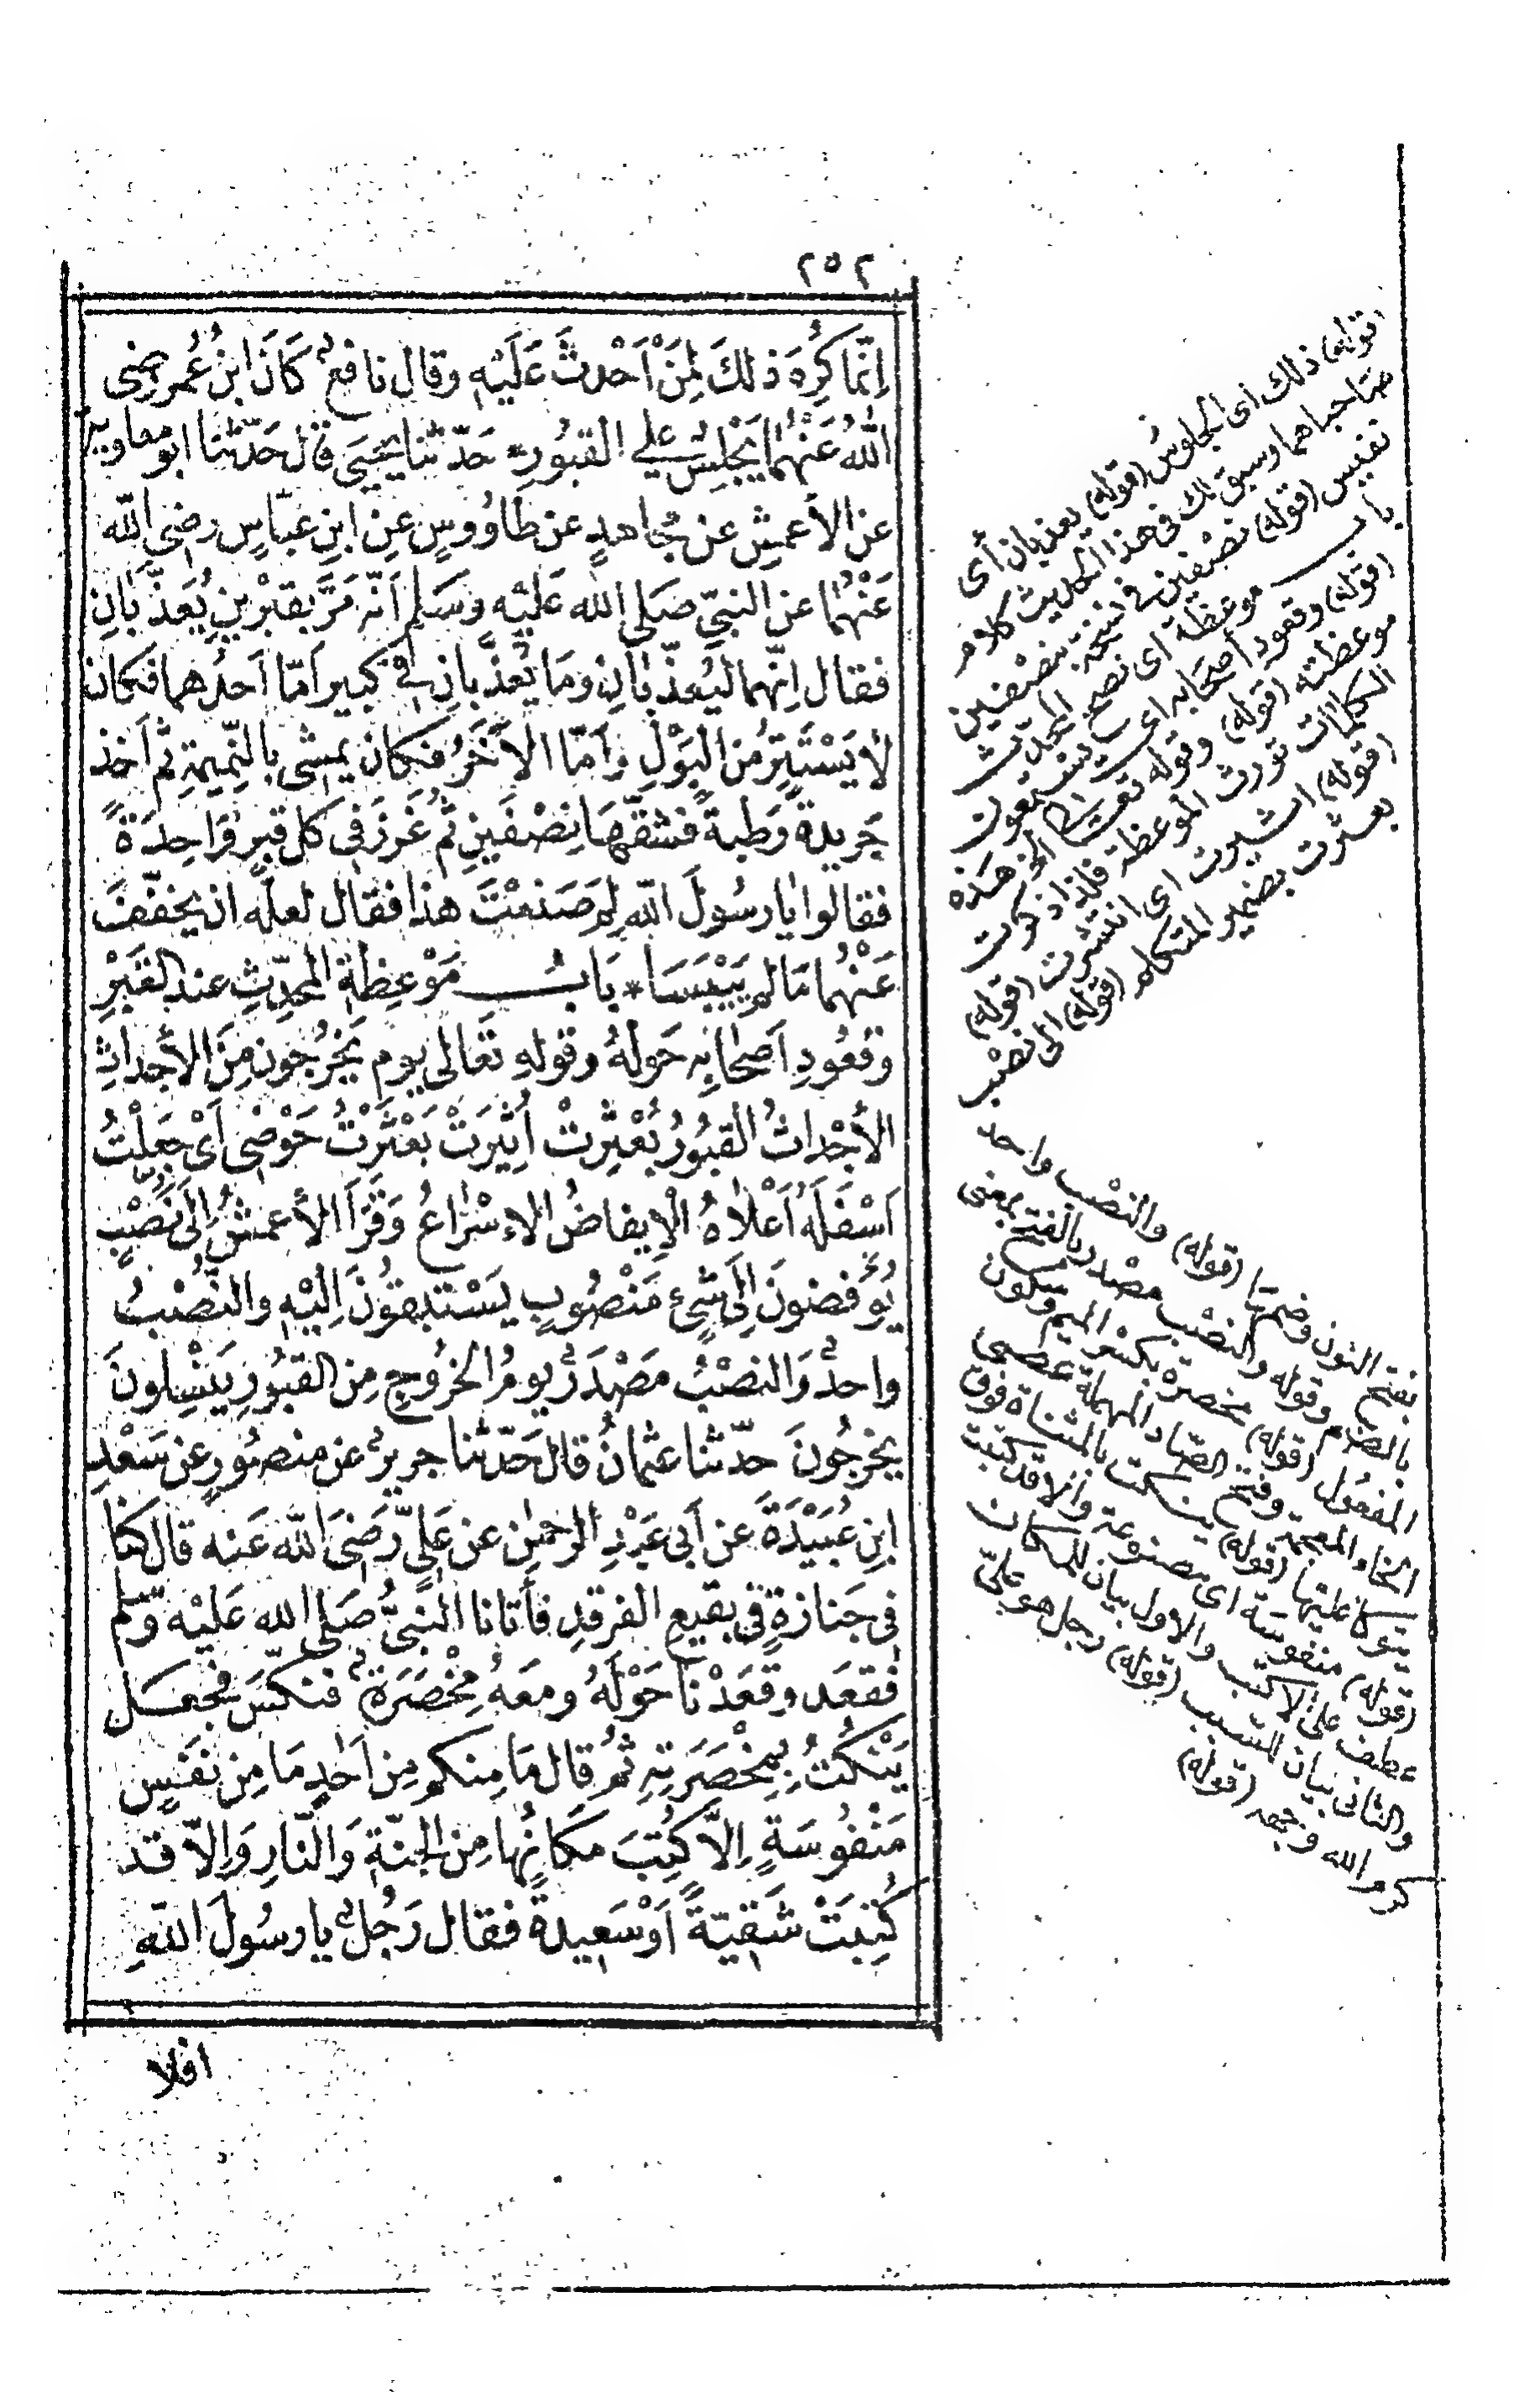 ٢٥٢
اِنَّما كُرِهَ ذلكَ لِمَنْ اَحْدثَ عَلَيْهِ وقال نافعٌ كَانَ ابنُ عُمر رضى
اللهُ عَنْهُمَا يَجْلِسُ على القبُورِ * حَدّثنا يحيَى قال حَدّثنا ابو معاوية
عن الأعمشِ عن مجُاهدٍ عن طاوُوسٍ عنِ ابنِ عبّاسٍ رضى الله
عَنْهُما عن النبىِّ صَلى الله عَليْه وَسَلم اَنّه مَرَّ بقبْرينِ يُعَذّبانِ
فقال اِنّهما ليُعذّبانِ وَمَا يُعذَّبانِ فى كبيرٍ اَمّا اَحدُهما فكانَ
لا يَسْتَتِرُ مِنَ البَوْلِ وَاَمّا الآخَرُ فكان يمشى بالنّميمةِ ثم اَخذ
جَريدةً رَطبةً فشقّهَا نِصْفَينِ ثم غَرزَ فى كل قبرٍ وَاحِدَةً
فقالوا يا رسُولَ اللهِ لِمَ صَنعْتَ هذا فقال لعلّه ان يخفّفَ
عَنْهُما مَا لم يَيْبَسَا * بَابُ مَوْعِظةِ المحدِّثِ عند القَبْرِ
وقعُودِ اَصحَابِه حَولهُ وقولهِ تعَالى يوم يَخْرُجُون مِنَ الأجداثِ
الأجْداثُ القبُورُ بُعْثِرتْ اُثيرَتْ بَعْثَرْتُ حَوْضى اَىْ جعَلْتُ
اَسْفلَهُ اَعْلاهُ الإيفاضُ الاِسْرَاعُ وَقَرَأ الأعمشُ اِلَى نَصْبٍ
يُوفِضُونَ اِلَى شىْءٍ مَنْصُوبٍ يَسْتبقُونَ اِليْه والنُّصْبُ
واحدٌ وَالنصْبُ مَصْدَرٌ يومُ الخرُوجِ مِن القبُورِ يَنْسِلونَ
يخرجُونَ حدّثنا عثمانُ قال حَدّثنا جريرٌ عن منصُورٍ عن سَعْدِ
ابنِ عُبَيْدَةَ عن اَبى عَبْدِ الرحمٰنِ عن عَلىٍّ رَضىَ اللهُ عَنه قال كنّا
فى جَنازةٍ فى بقيعِ الغرقدِ فأتانا النبىُّ صَلى الله عَليْه وَسلم
فقعَد وقعَدْنا حَوْلهُ ومَعهُ مِخْصَرَةٌ فنكّسَ فجعَل
يَنْكُتُ بِمِخْصَرَتِهِ ثم قال مَا مِنكم مِن اَحدٍ مَا مِن نفَسٍ
مَنْفُوسَةٍ اِلاَّ كُتِبَ مَكَانُها مِن الجنّةِ وَالنّارِ وَاِلاّ قد
كُتِبَتْ شَقيّةً اَوْ سَعِيدةً فقال رَجُلٌ يا رسُولَ اللهِ
افلا
(قوله) ذلك اى الجلوسُ (قوله) يعذبان أى
صَاحباهما وسبق لك فى هذا الحديث كلام
نفيس (قوله) نصْفين فى نسخة بنصْفين
باب موعظة اى نصح المحدّث
(قوله) وقعود أصحابه اى يستمعون
موعظته (قوله) وقوله تعالى الخ هَذه
الكلمات تورث الموعظة فلذا ذكرت
(قوله) اثيرت اى انتثرت (قوله)
بعثرت بضمير المتكلم (قوله) الى نصْب
بفتح النون وضمّها (قوله) والنصْب واحد
بالضم وقوله والنصْب مصْدر بالفتح بمعنى
المفعُول (قوله) مخصرة بكسْر الميم وسكون
الخاء المعجمة وفتح الصّاد المهملة عصى
يتوكأ عليها (قوله) ينكت بالمثناة فوق
(قوله) منفوسَة اى مصنوعة والا قد كتبت
عطف على الا كتب والاول بيان للمكان
والثانى بيان للسّبب (قوله) رجل هو علىّ
كرم الله وجهه (قوله)